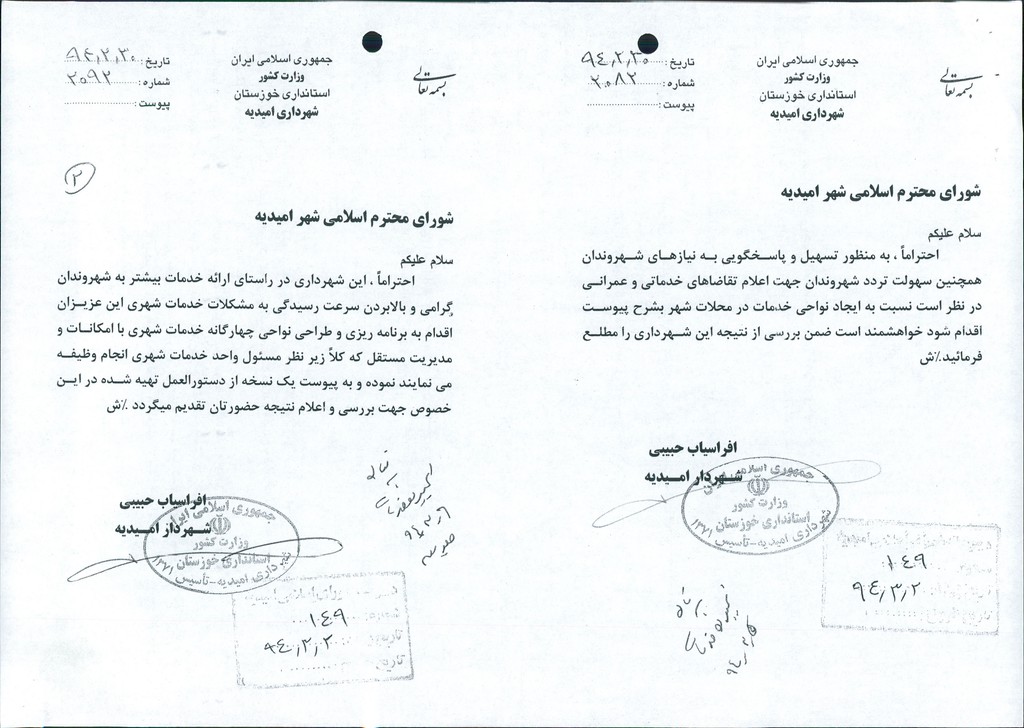 بسمه تعالی
جمهوری اسلامی ایران
وزارت کشور
استانداری خوزستان
شهرداری امیدیه
تاریخ: ۹۴٫۲٫۳۰
شماره: ۲۰۸۲
پیوست:
شورای محترم اسلامی شهر امیدیه
سلام علیکم
احتراماً، به منظور تسهیل و پاسخگویی به نیازهای شهروندان
همچنین سهولت تردد شهروندان جهت اعلام تقاضاهای خدماتی و عمرانی
در نظر است نسبت به ایجاد نواحی خدمات در محلات شهر بشرح پیوست
اقدام شود خواهشمند است ضمن بررسی از نتیجه این شهرداری را مطلع
فرمائید.٪ش
افراسیاب حبیبی
شهردار امیدیه
جمهوری اسلامی ایران
وزارت کشور
استانداری خوزستان
شهرداری امیدیه-تأسیس ۱۳۷۱
۱۰۴۹
۹۴٫۳٫۲
بسمه تعالی
جمهوری اسلامی ایران
وزارت کشور
استانداری خوزستان
شهرداری امیدیه
تاریخ: ۹۴٫۲٫۳۰
شماره: ۲۰۹۲
پیوست:
۲
شورای محترم اسلامی شهر امیدیه
سلام علیکم
احتراماً ، این شهرداری در راستای ارائه خدمات بیشتر به شهروندان
گرامی و بالابردن سرعت رسیدگی به مشکلات خدمات شهری این عزیزان
اقدام به برنامه ریزی و طراحی نواحی چهارگانه خدمات شهری با امکانات و
مدیریت مستقل که کلاً زیر نظر مسئول واحد خدمات شهری انجام وظیفه
می نمایند نموده و به پیوست یک نسخه از دستورالعمل تهیه شده در این
خصوص جهت بررسی و اعلام نتیجه حضورتان تقدیم میگردد .٪ش
افراسیاب حبیبی
شهردار امیدیه
جمهوری اسلامی ایران
وزارت کشور
استانداری خوزستان
شهرداری امیدیه-تأسیس ۱۳۷۱
شماره: ۱۰۴۹
تاریخ: ۹۴٫۳٫۲
تاریخ